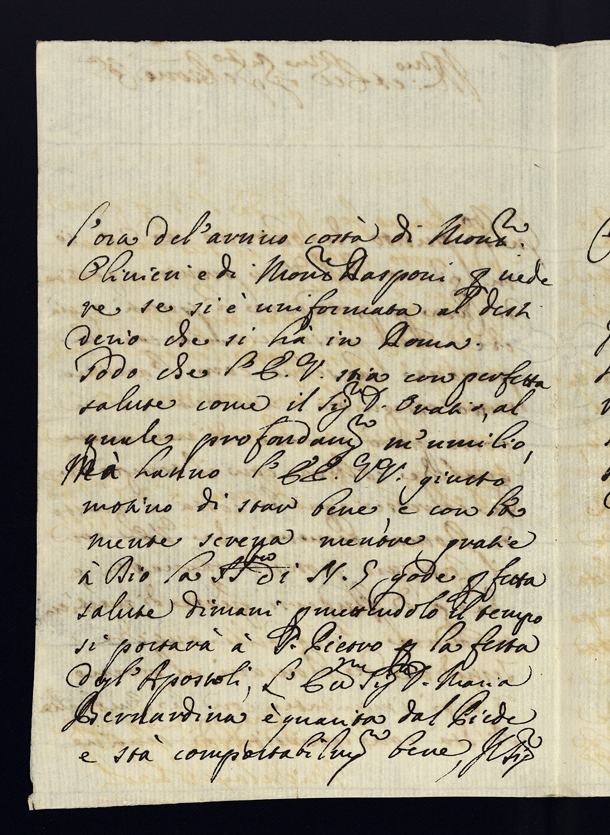 l'ora del'arrivo costà di Mons.re
Olivieri e di Mons.re Rasponi p vede
re se si è uniformata al desi
derio che si hà in Roma.
Godo che l'E. V. stia con perfetta
salute come il Sig.re D. Oratio, al
quale profondam.te m'umilio,
Mà hanno l'EE. VV. giusto
motivo di star bene, e con la
mente serena mentre gratie
à Dio la S.tà di N. S. gode pfetta
salute dimani pmettendolo il tempo
si portarà à S. Pietro p la festa
degl'Apostoli, L'Ecc.ma Sig.ra D. Maria
Bernardina è guarita dal Piede
e stà comportabilm.te bene, Il Sig.re